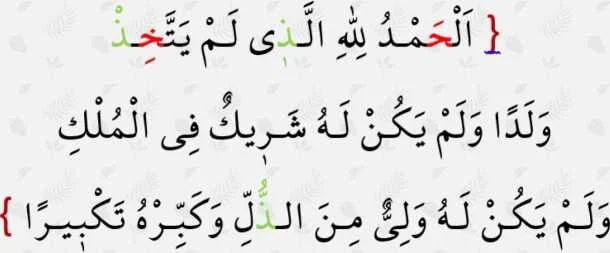 { اَلْحَمْدُ لِلّٰهِ الَّذٖى لَمْ يَتَّخِذْ
وَلَدًا وَلَمْ يَكُنْ لَهُ شَرٖيكٌ فِى الْمُلْكِ
وَلَمْ يَكُنْ لَهُ وَلِىٌّ مِنَ الذُّلِّ وَكَبِّرْهُ تَكْبٖيرًا }